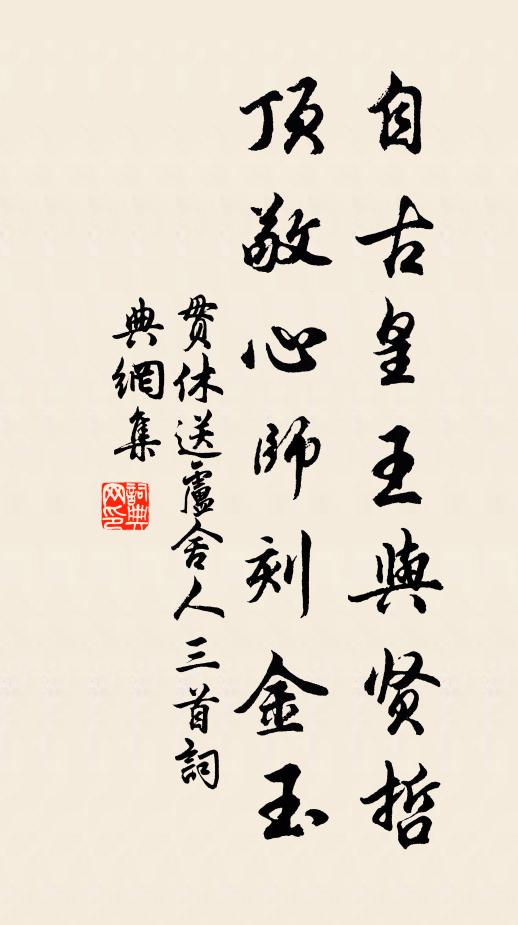 自古皇王與贤哲
頂敬心師刻金玉
贯休送盧舍人三首詞
典網集
詞典
网印